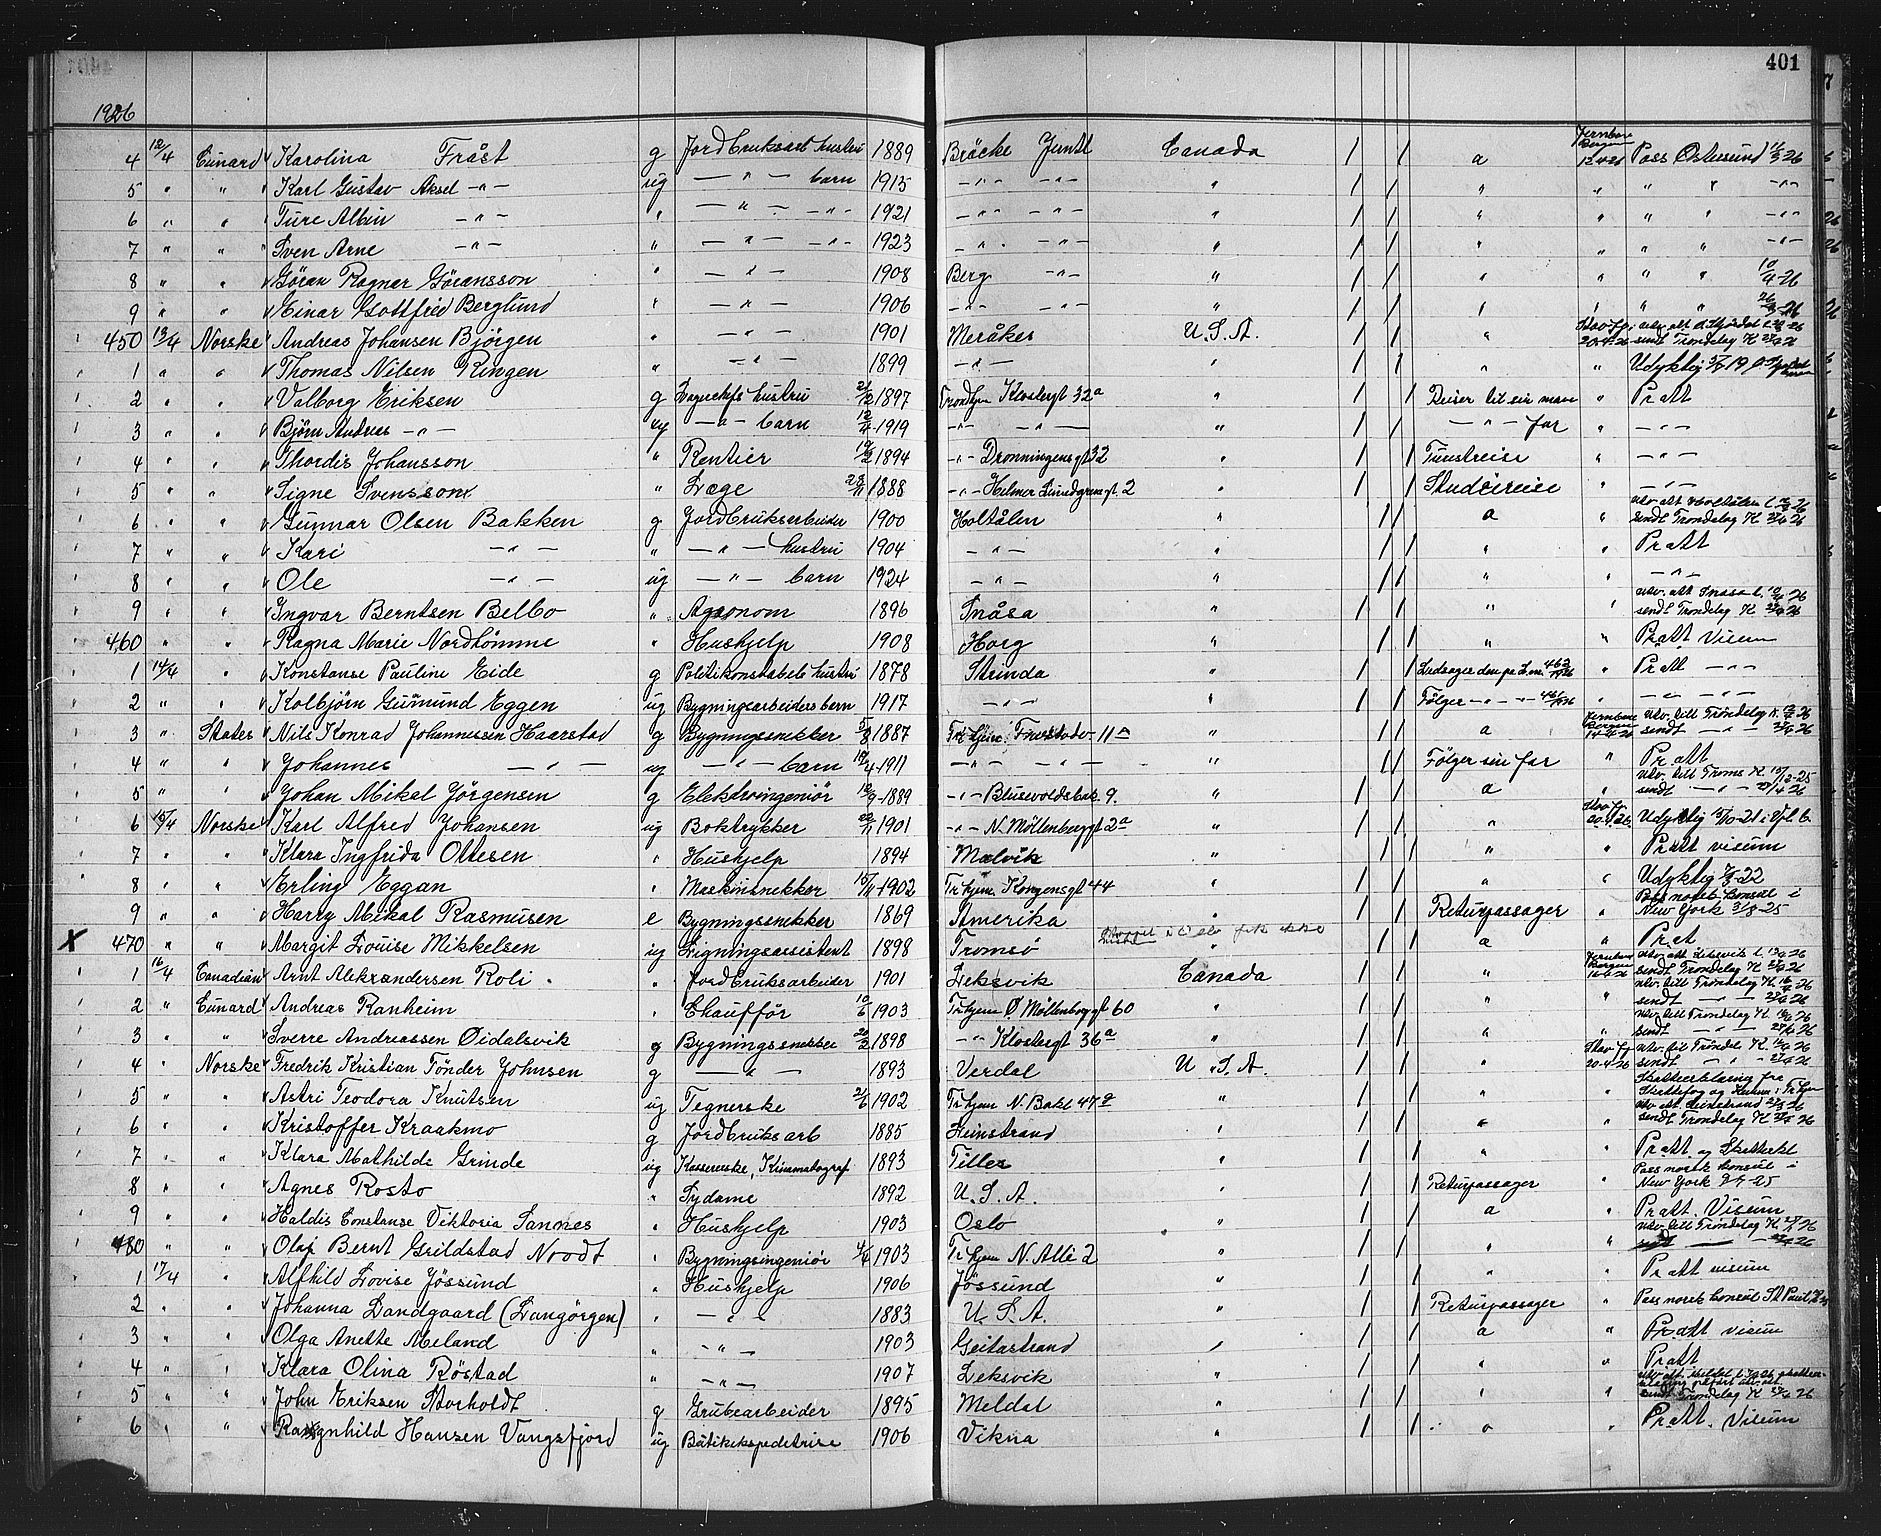 401
1926
4 12/4 Cunard Karolina Fråst g Jordbruksarb hustru 1889 Bräcke Jemtl Canada / / a Jernbane Bergen 12-4-26 Pass Östersund 16/3 26
5 " " Karl Gustav Aksel -"- ug -"- barn 1915 -"- -"- " / / " " " " -"-
6 " " Ture Albin -"- " -"- -"- 1921 -"- -"- " / / " " " " -"-
7 " " Sven Arne -"- " -"- -"- 1923 -"- -"- " / / " " " " -"-
8 " " Göran Ragnar Göransson " -"- 1908 Berg -"- " / / " " " " 10/4-26
9 " " Einar Gottfred Berglund " -"- 1906 -"- -"- " / / " " " " 26/3-26
450 13/4 Norske Andreas Johansen Bjørgen " -"- 1901 Meråker U.S.A. / / " 20-4-26 sendt Trøndelag K 23/4 26
1 " " Thomas Nilsen Ringen " -"- 1899 -"- " / / " " Udyktig
2 " " Valborg Eriksen g hustru 21/12 1897 Trondhjem Klostergt 32a " / / Reiser til sin mann " Pr att
3 " " Bjørn Andreas -"- ug -"- barn 12/4-1919 -"- -"- " / / -"- far " -"-
4 " " Thordis Johansson " Rentier 19/2 1894 -"- Dronningensgt 32 " / / Turistreise " -"-
5 " " Signe Svensson " Læge 28/11 1888 -"- Helmer Lundgrensgt. 2 " / / Studiereise " -"-
6 " " Gunnar Olsen Bakken g Jordbruksarbeider 1900 Holtålen " / / a " utv. att Holtålen sendt Trøndelag K 23/4 26
7 " " Kari -"- " -"- hustru 1904 -"- " / / " " Pr att
8 " " Ole -"- ug -"- barn 1924 -"- " / / " " -"-
9 " " Ingvar Berntsen Belbo " Agronom 1896 Snåsa " / / " " utv. att Snåsa sendt Trøndelag K 23/4 26
460 " " Ragna Marie Nordtømme " Hushjelp 1908 Horg " / / " " Pr att Visum
1 14/4 " Konstanse Pauline Eide g Politikonstabels hustru 1878 Strinda " / / Ledsager 462 " Pr att -"-
2 " " Kolbjørn Gumund Eggen ug Bygningsarbeiders barn 1917 -"- " / / Følger -"- 461 " -"- -"-
3 " States Nils Konrad Johannessen Haarstad g Bygningssnekker 5/8 1887 Tr.hjem 11a " / / a Jernbane Bergen 14-4-26 utv. till Trøndelag K. sendt -"- 26
4 " " Johannes -"- ug -"- barn 1911 -"- -"- " / / Følger sin far " Pr att
5 " " Johan Mikal Jørgensen g Elektroingeniør 12/9-1889 -"- Blusevoldsbak. 9. " / / a " utv. till Troms K. 15/12-25 sendt -"- 26
6 15/4 Norske Karl Alfred Johansen ug Boktrykker 22/11 1901 -"- N. Møllenberggt 2a " / / " 20-4-26. Udyktig
7 " " Klara Ingfrida Ottesen " Hushjelp 1894 Malvik " / / " " Pr att visum
8 " " Erling Eggan " Maskinsnekker 15/11-1902 Tr.hjem. Kongensgt 44 " / / " " Udyktig 22
9 " " Harry Mikal Rasmusen e Bygningssnekker 1869 Amerika " / / Returpassager " Pass norsk Consul i New York 3/8-25
X 470 " " Margit Louise Mikkelsen ug Ligningsassistent 1898 Tromsø " / / a " Pr att
1 16/4 Canadian Arnt Aleksandersen Roli " Jordbruksarbeider 1901 Leksvik Canada / / " Jernbane Bergen 16-4-26 utv. att Leksvik sendt Trøndelag K 26
2 " Cunard Andreas Ranheim " Chauffør 10/6 1903 Tr.hjem Ø. Møllenberggt 60 " / / " " utv. till Trøndelag K. sendt -"- 26
3 " " Sverre Andreassen Øidalsvik g Bygningssnekker 20/2 1898 -"- Klostergt 36a " / / " " utv. till Trøndelag K sendt -"- 26
4 " Norske Fredrik Kristian Tønder Johnsen g -"- 1893 Verdal U.S.A. / / " 20-4-26 utv. til Trøndel K sendt " " 26
5 " " Astri Teodora Knutsen ug Tegnerske 21/6 1902 Tr.hjem N. Bakl 47 " / / " " Skatteerklæring fra Skattefog og Kemn. i Tr.hjem
6 " " Kristoffer Kraakmo g Jordbruksarb 1885 Leinstrand " / / " " utv. att. Leinstrand sendt Trøndelag K 26
7 " " Klara Mathilde Grinde ug Kassererske, Kinematograf 1893 Tiller " / / " " Pr att og Skatteerkl
8 " " Agnes Rosto " Sydame 1892 U.S.A. " / / Returpassager " Pass norsk Consul i New York 25
9 " " Haldis Constanse Viktoria Sannes " Hushjelp 1903 Oslo " / / a " Pr att. Visum
480 " " Olaf Bernt Grildstad Noodt " Bygningsingeniør 4/4 1903 Tr.hjem N. Allé 2 " / / " " utv. till Trøndelag K. sendt — 26
1 17/4 " Alfhild Lovise Jøssund " Hushjelp 1906 Jøssund " / / " " Pr att visum
2 " " Johanna Landgaard (Langørgen) " -"- 1883 U.S.A. " / / Returpassager " Pass norsk Consul St Paul,
3 " " Olga Anette Meland " -"- 1903 Geitastrand " / / a " Pr att visum
4 " " Klara Olina Røstad " -"- 1907 Leksvik " / / " " Pr att
5 " " John Eriksen Storholdt g Grubearbeider 1895 Meldal " / / " " utv. att. Meldal sendt Trøndelag K 26
6 " " Ragnhild Hansen Vangsfjord ug Butikekspeditrise 1906 Vikna " / / " " Pr att. Visum